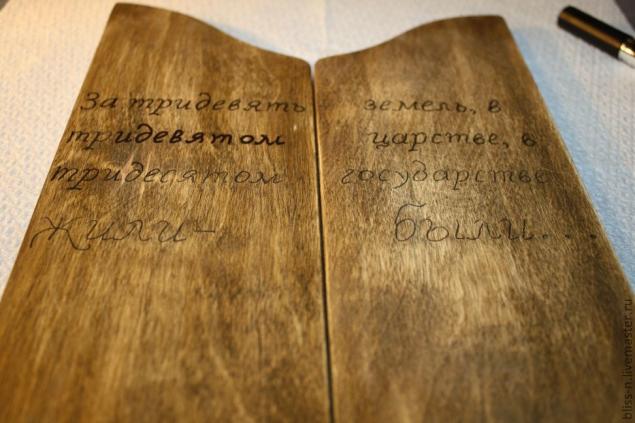 За тридевять земель, в
тридевятом царстве, в
тридесятом государстве
жили- были...
bliss-n.livemaster.ru